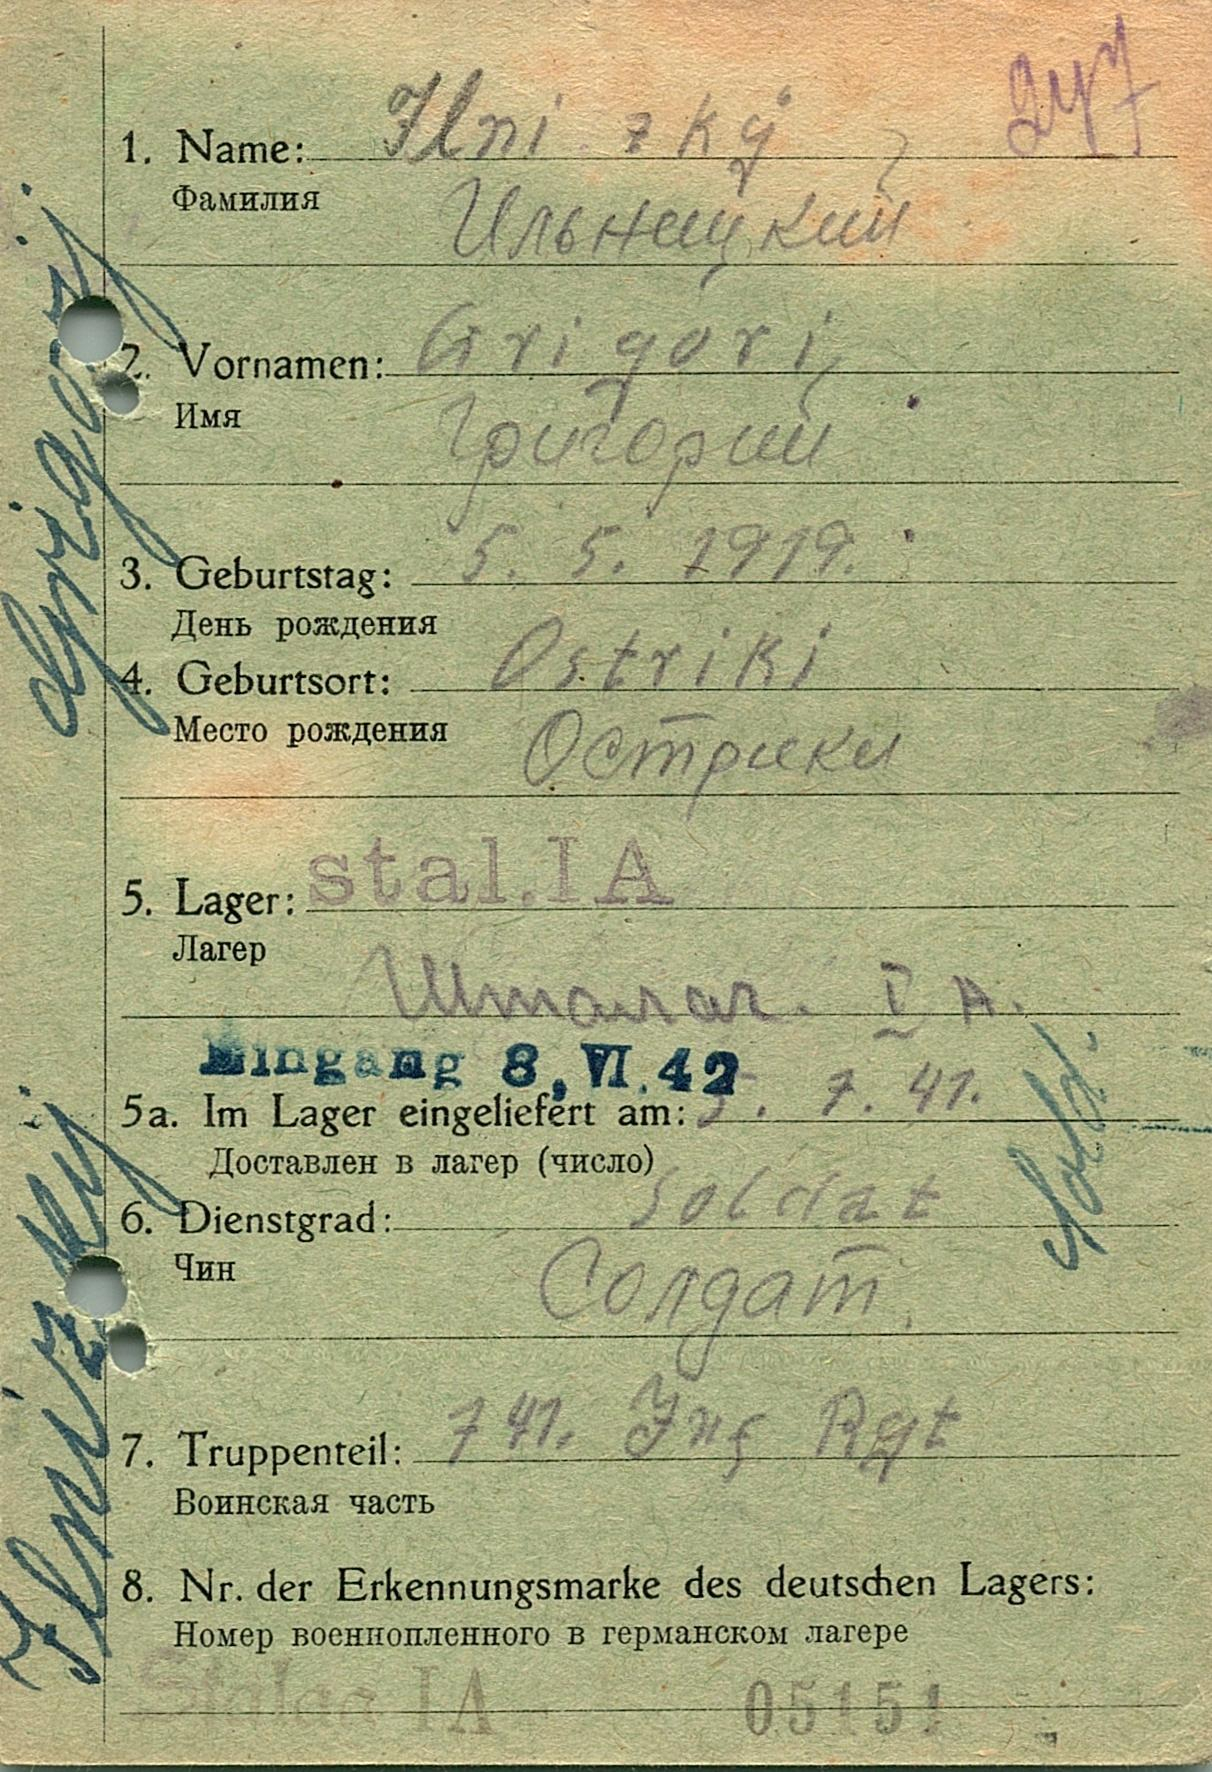 1. Name: Ilnizkij
Фамилия
Ильницкий
2. Vornamen: Grigori
Имя
Григорий
3. Geburtstag: 5. 5. 1919.
День рождения
4. Geburtsort: Ostriki
Место рождения
Острики
5. Lager: stal. I A
Лагер
Шталаг. I A.
Eingang 8. VI. 42
5a. Im Lager eingeliefert am: 5. 7. 41.
Доставлен в лагер (число)
6. Dienstgrad: Soldat
Чин
Солдат.
Sold.
7. Truppenteil: 741. Inf Rgt
Воинская часть
8. Nr. der Erkennungsmarke des deutschen Lagers:
Номер военнопленного в германском лагере
Stalag IA 05151
Ilnizkij Grigorij